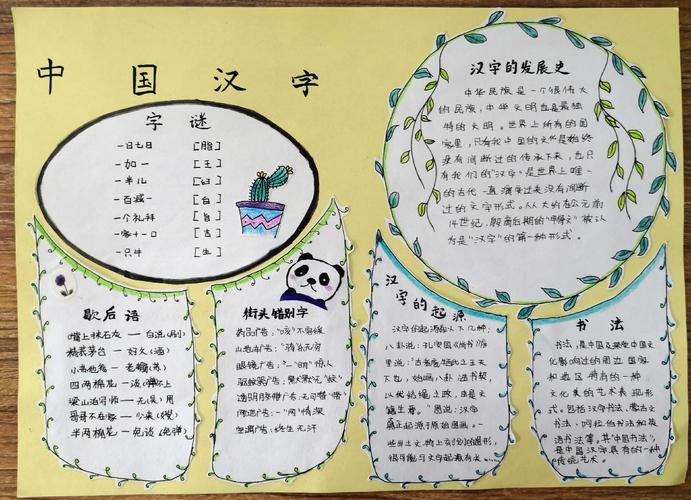 中国汉字
字谜
一日七日 [脂]
一加一 [王]
一半儿 [臼]
一百减一 [白]
一个礼拜 [旨]
一家十一口 [吉]
一只牛 [生]
汉字的发展史
中华民族是一个很伟大
的民族，中华文明也是最独
特的文明。世界上所有的国
家里，只有我中国的文化是始终
没有间断过的传承下来，也只
有我们的“汉字”是世界上唯一
的古代一直演变过来没有间断
过的文字形式。从大约在公元前
14世纪，殷商后期的“甲骨文”被认
为是“汉字”的第一种形式。
歇后语
墙上抹石灰 — 白说(刷)
精装茅台 — 好久(酒)
小葱他爸 — 老
四两棉花 — 谈
梁山泊军师 — 无(吴)用
哥哥不在家 — 少来(嫂)
半两棉花 — 免谈(绵弹)
街头错别字
药品广告：“咳”不容缓
山地车广告：“骑”乐无穷
眼镜广告：一“明”惊人
驱蚊器广告：默默无“蚊”
透明胶带广告：无可“带”
网吧广告：一“网”情深
空调广告：终生无汗
汉字的起源
汉字的起源有以下几种：
八卦说：孔安国《尚书》序
里说：“古者庖牺氏之王天
下也，始画八卦，造书契，
以代结绳之政，由是文
籍生焉。”图说：汉字
真正起源于原始图画。一
些出土文物上刻划的图形，
很可能与文字起源有关
书法
书法，是中国及深受中国文
化影响过的周边国家
和地区特有的一种
文化美的艺术表现形
式。包括汉字书法、蒙古文
书法、阿拉伯书法和英
语书法等。其“中国书法”，
是中国汉字具有的一种
传统艺术。